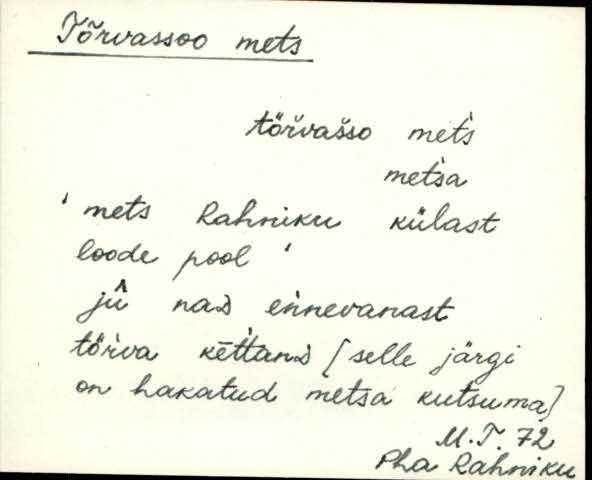 Tõrvassoo mets
tõřvašso met́s
met́sa
' mets Rahniku külast
loode pool '
jû naD ennevanast
tõrva kēt́tanD [selle järgi
on hakatud metsa kutsuma]
M.T. 72
Pha Rahniku